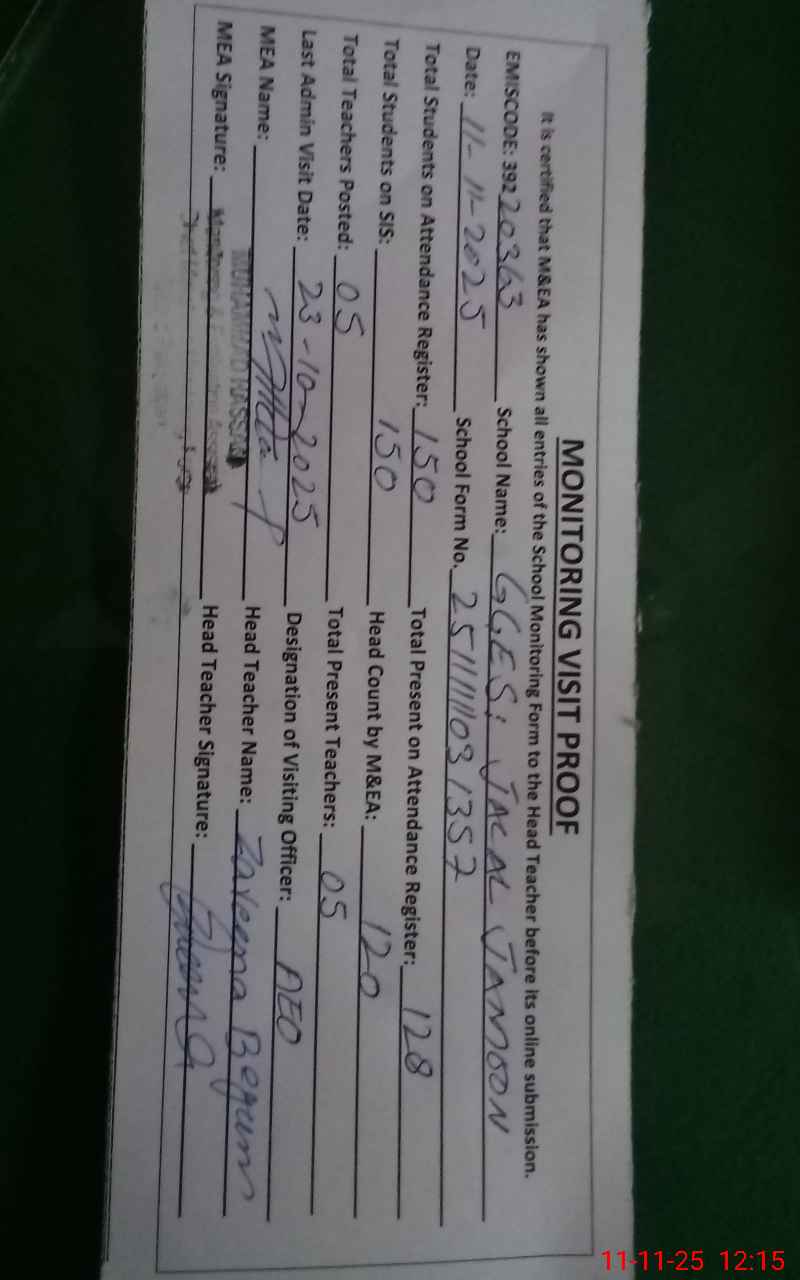 MONITORING VISIT PROOF
It is certified that M&EA has shown all entries of the School Monitoring Form to the Head Teacher before its online submission.
EMISCODE: 39220363 School Name: GGES: JALAL JAMOON
Date: 11-11-2025 School Form No. 2511111031357
Total Students on Attendance Register: 150 Total Present on Attendance Register: 128
Total Students on SIS: 150 Head Count by M&EA: 120
Total Teachers Posted: 05 Total Present Teachers: 05
Last Admin Visit Date: 23-10-2025 Designation of Visiting Officer: AEO
MEA Name: MUHAMMAD HASSAN Head Teacher Name: Zareena Begum
MEA Signature: Monitoring & Head Teacher Signature:
11-11-25 12:15